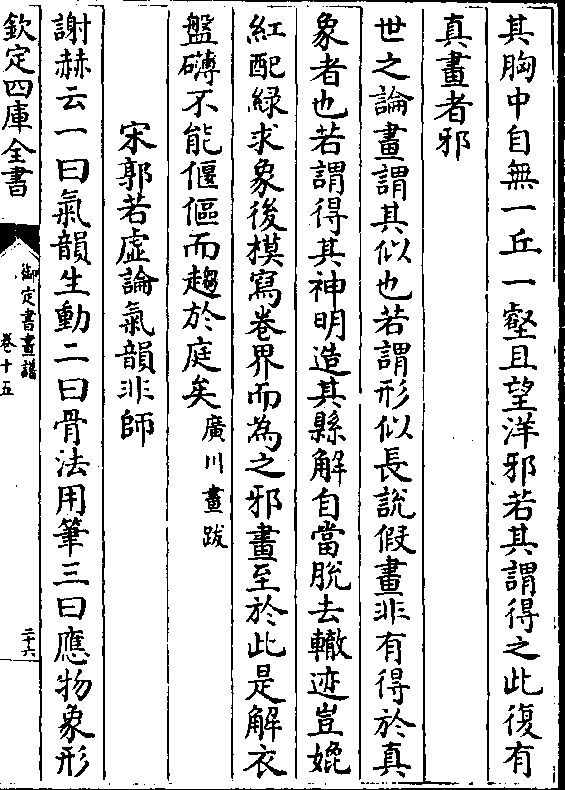 其胸中自無一丘一壑且望洋邪若其謂得之此復有
真畫者邪
世之論畫謂其似也若謂形似長說假畫非有得於真
象者也若謂得其神明造其縣解自當脫去轍迹豈媲
紅配綠求象後模寫卷界而為之邪畫至於此是解衣
盤礴不能傴傴而趨於庭矣廣川畫跋
宋郭若虛論氣韻非師
謝赫云一曰氣韻生動二曰骨法用筆三曰應物象形
欽定四庫全書
御定書畫譜
卷十五
二十六